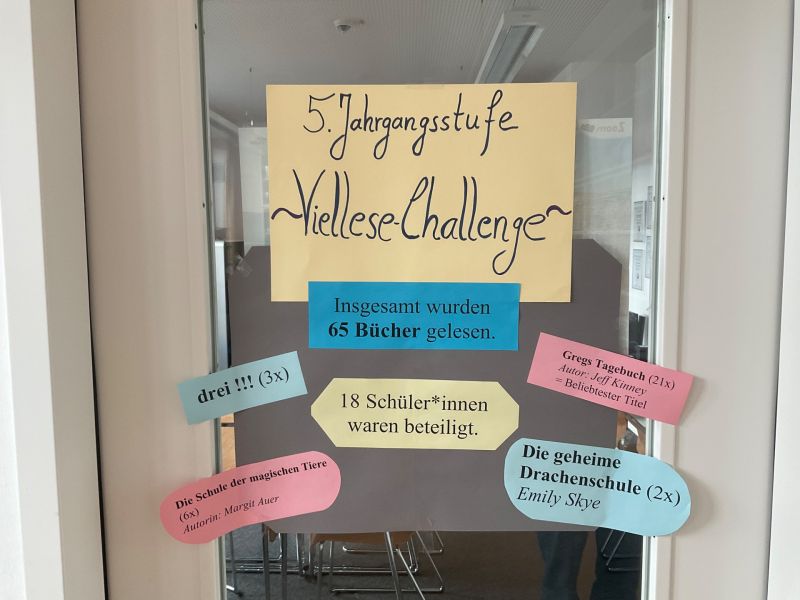 5. Jahrgangsstufe
~Viellese-Challenge~
Insgesamt wurden
65 Bücher gelesen.
drei !!! (3x)
Gregs Tagebuch (21x)
Autor: Jeff Kinney
= Beliebtester Titel
18 Schüler*innen
waren beteiligt.
Die Schule der magischen Tiere
(6x)
Autorin: Margit Auer
Die geheime
Drachenschule (2x)
Emily Skye